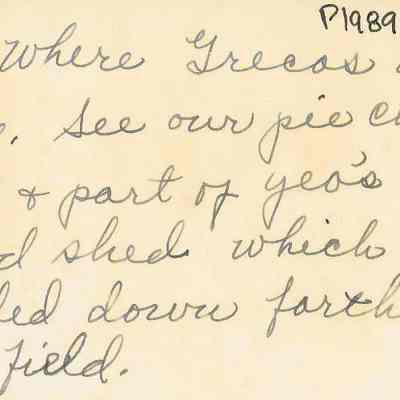 P1989
Where Grecos
. See our pie c
& part of yeo's
d shed which
led down farth
field.